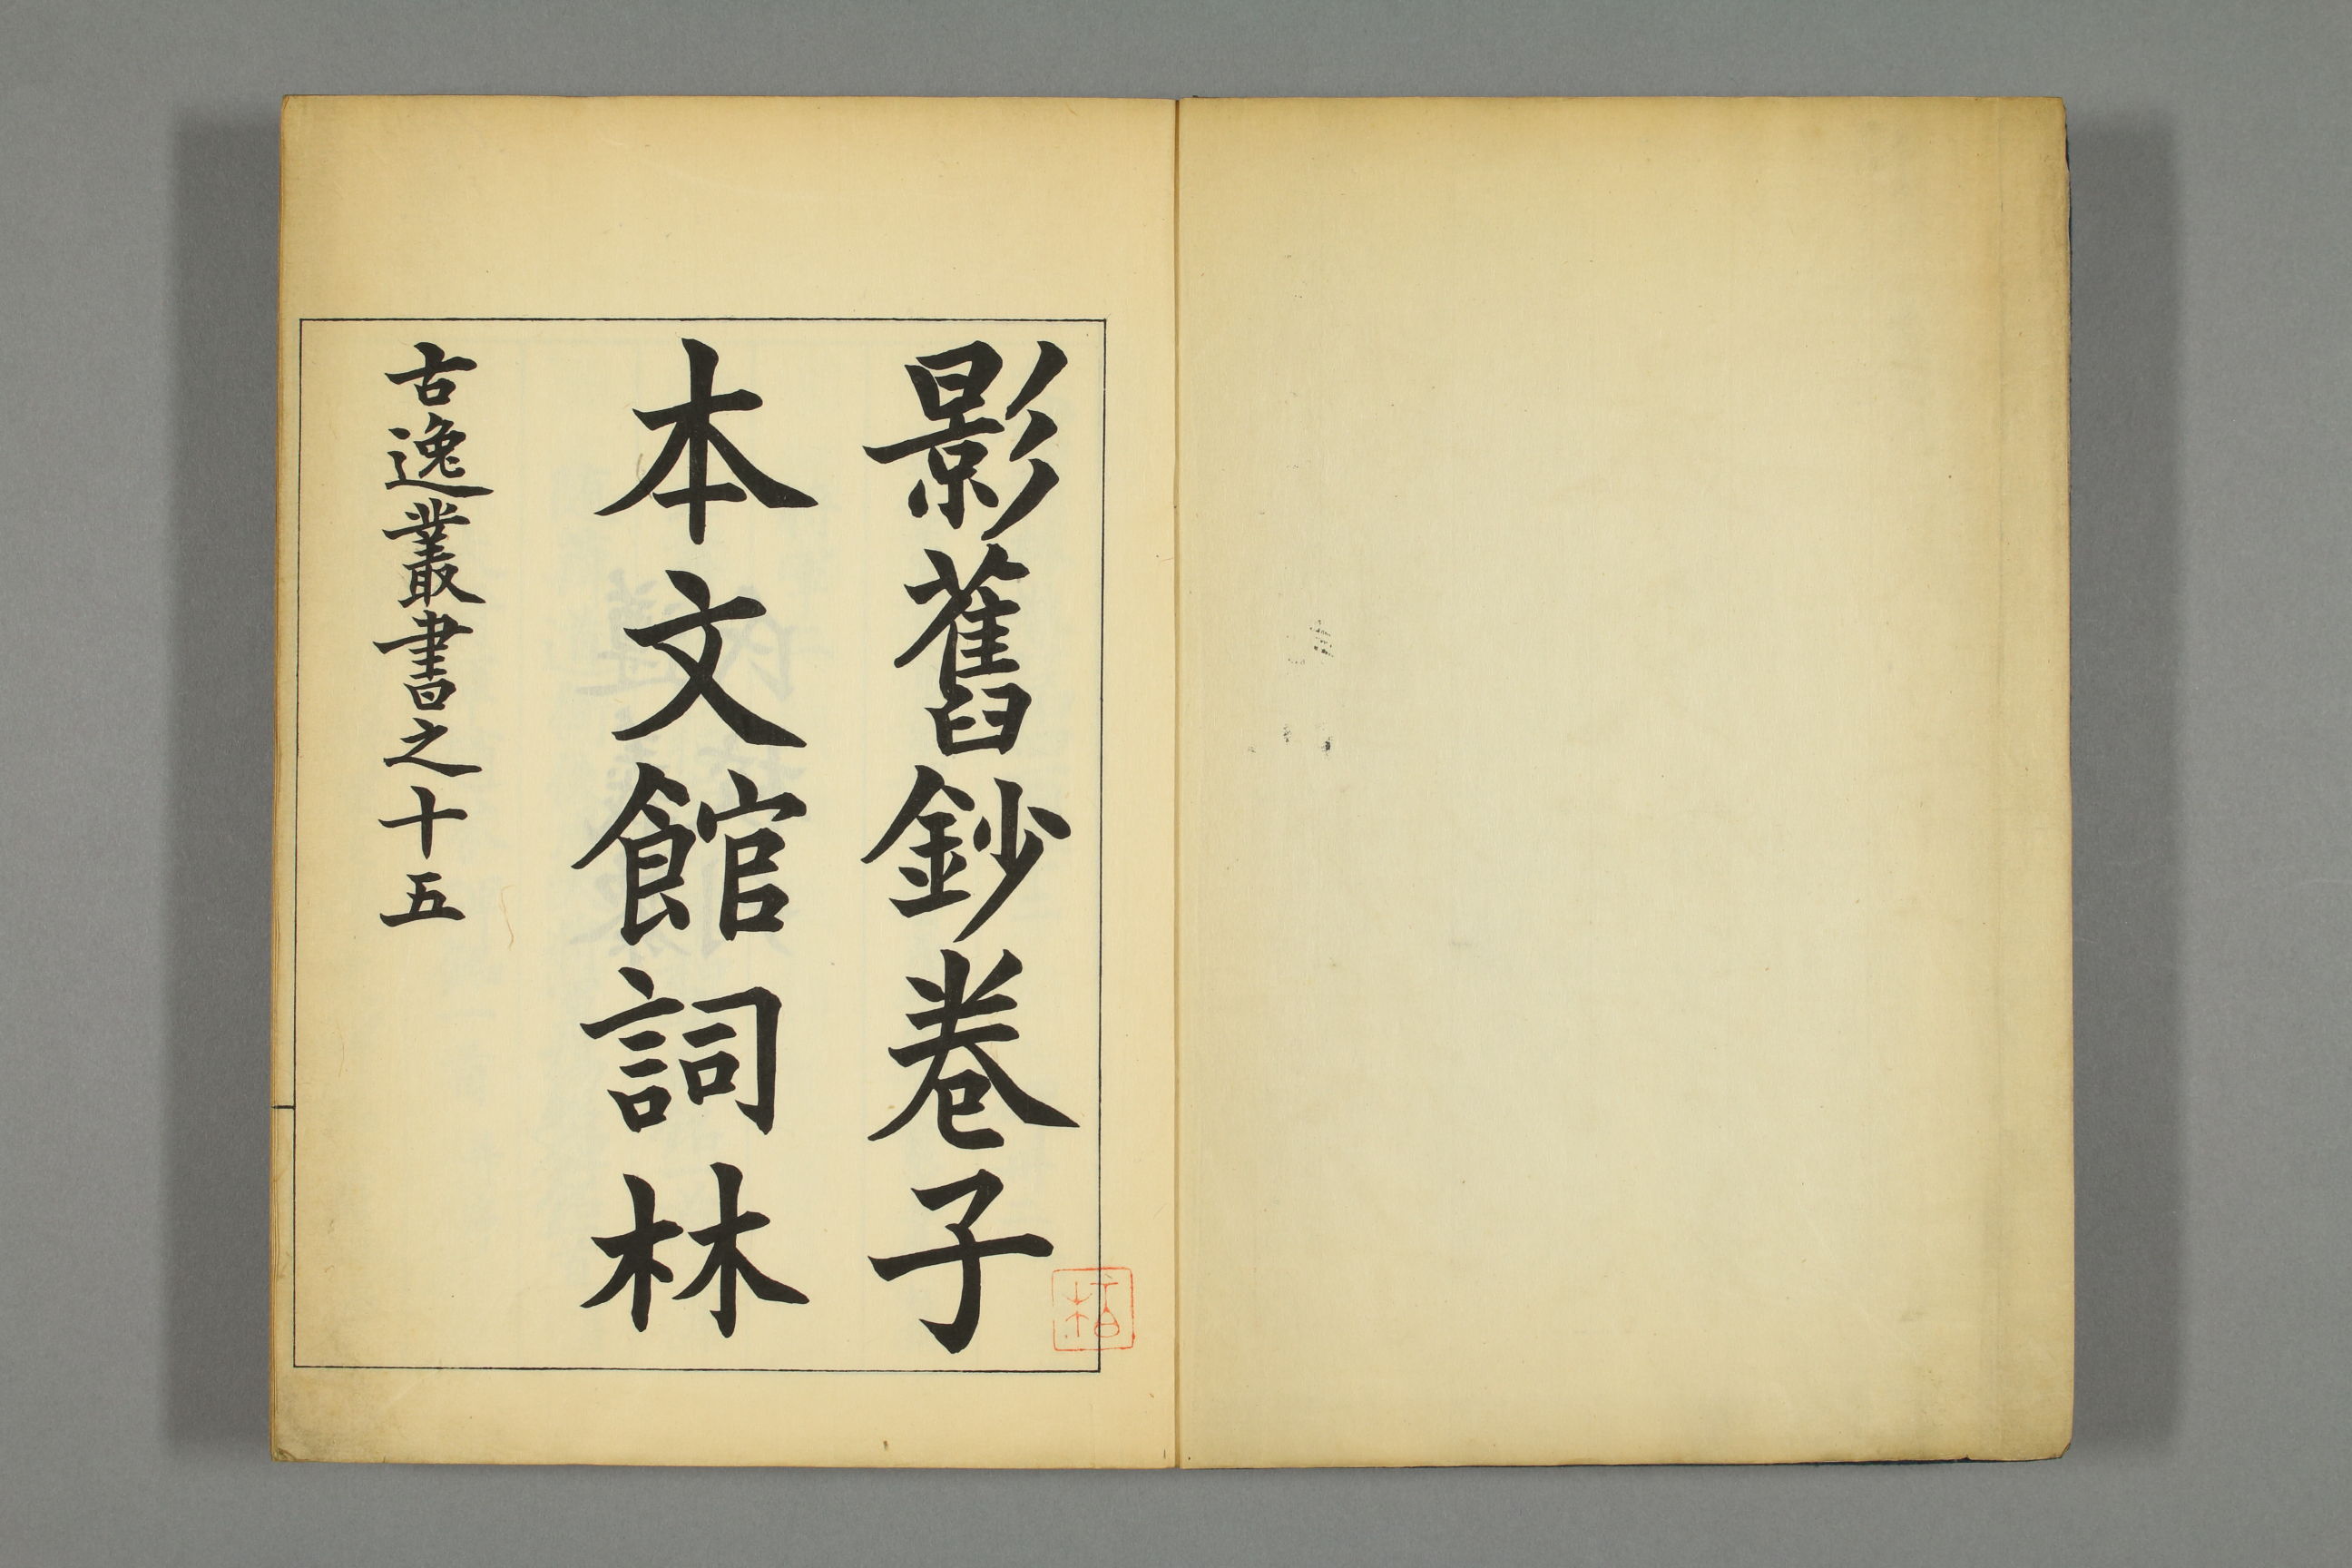 影舊鈔卷子
本文館詞林
古逸叢書之十五